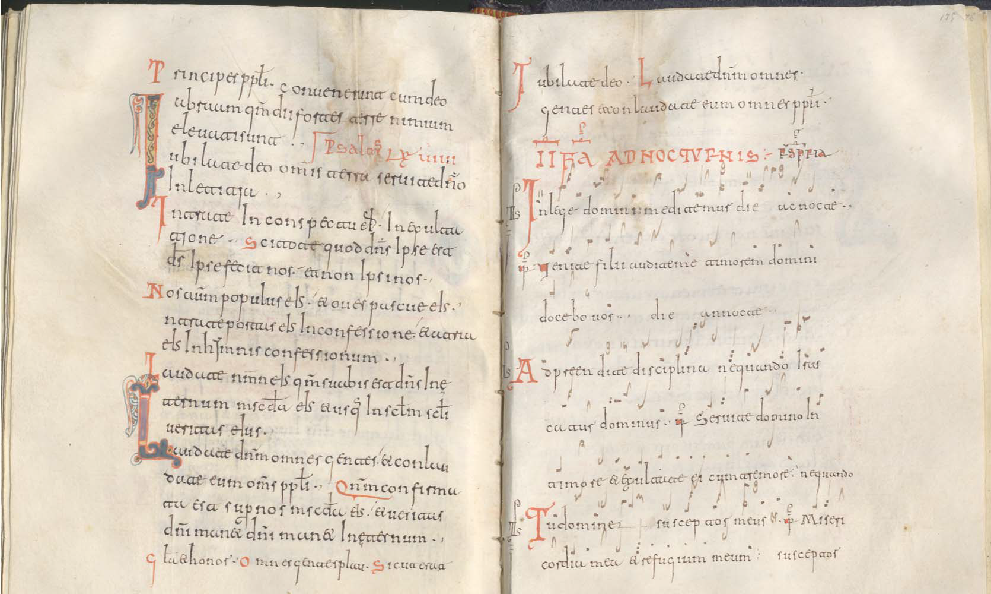 Principes ppli. Convenerunt cum deo
abraam qm dii fortes terre nimium
elevati sunt. Psalms
Iubilate deo omis terra servite dno
In letitia.
Intrate In conspectu eIs. In exulta
tione. Scitote quod dns Ipse est
ds Ipse fecit nos et non Ipsi nos.
Nos autm populus eIs. & oves pascue eIs.
Intrate portas eIs In confessione. & atria
eIs In himnis confessionum.
Laudate nmn eIs qm suabis est dns In e
ternum mscda eIs & usq In sclm scli
veritas eIus.
Laudate dnm omnes gentes & conlau
date eum oms ppli. Qnm confirma
ta est sup nos mscda eIs. & veritas
dni mane& dni mane& In eternum.
Gla & honos. Omnes gentes plau. Sicut erat
Iubilate deo. Laudate dnm omnes
gentes & conlaudate eum omnes ppli.
AD NOCTURNIS
In lege domini meditemus die ac nocte
Venite filii audite me timorem domini
docebo vos. die ac nocte
Adpreendite disciplina nequando Iras
catus dominus. Servite domino In
timore & exultate ei cum tremore. nequando
Tu domine susceptos meus es. Miseri
cordia mea & refugium meum. susceptos